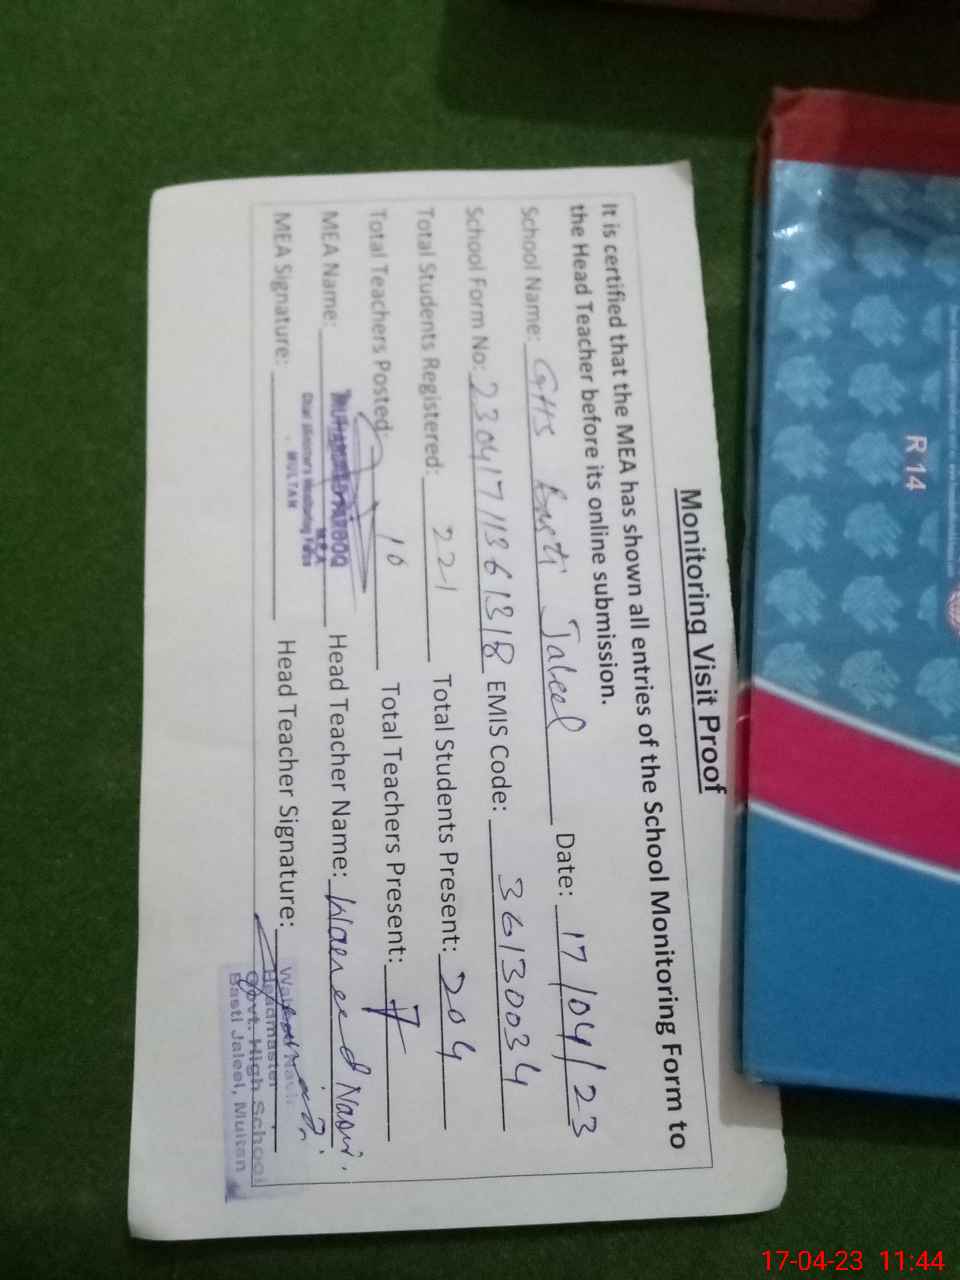 Monitoring Visit Proof
It is certified that the MEA has shown all entries of the School Monitoring Form to
the Head Teacher before its online submission.
School Name: GHS Basti Jaleel Date: 17/04/23
School Form No: 23041711361318 EMIS Code: 36130034
Total Students Registered: 221 Total Students Present: 204
Total Teachers Posted: 10 Total Teachers Present: 7
MEA Name: Head Teacher Name: Waheed Nasir.
MEA Signature: Head Teacher Signature:
MULTAN
Headmaster
Govt. High School
Basti Jaleel, Multan
R 14
17-04-23 11:44